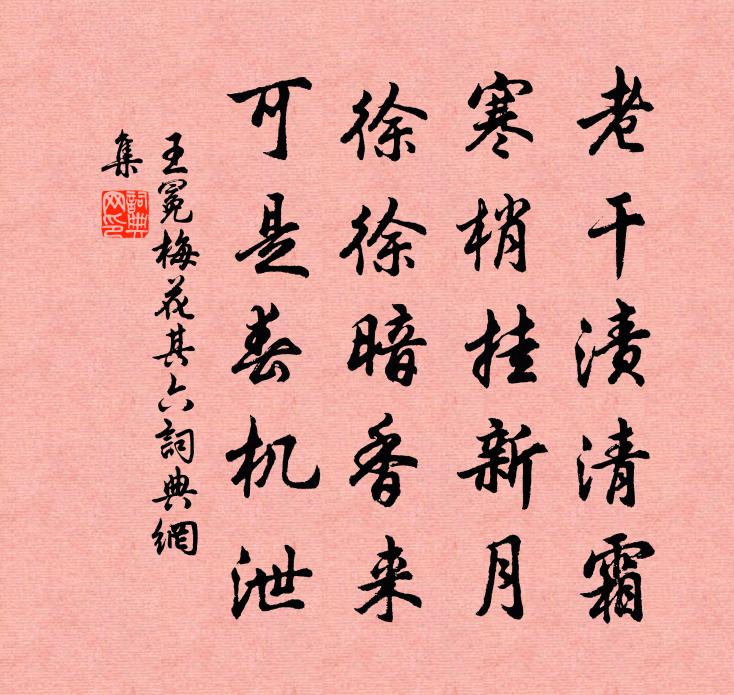 老干渍清霜
寒梢挂新月
徐徐暗香来
可是春机泄
王冕梅花其六詞典網
集
詞典网印